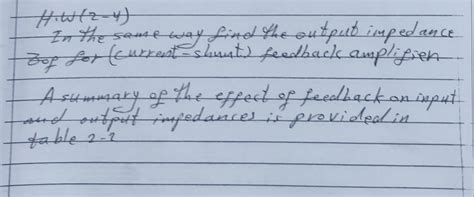 H.W(2-4)
In the same way find the output impedance
Zof for (current-shunt) feedback amplifier
A summary of the effect of feedback on input
and output impedances is provided in
table 2-2